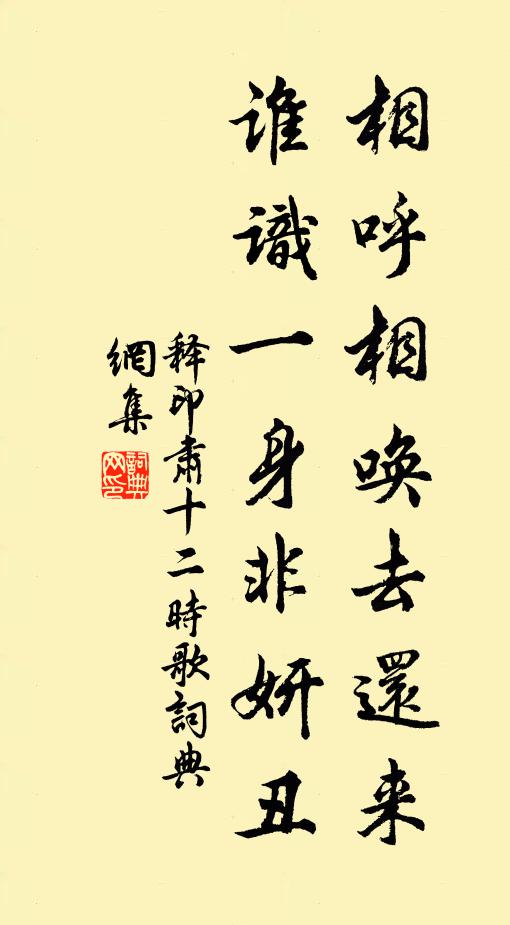 相呼相唤去還来
谁識一身非妍丑
释印肅十二時歌詞典
網集
詞典網印